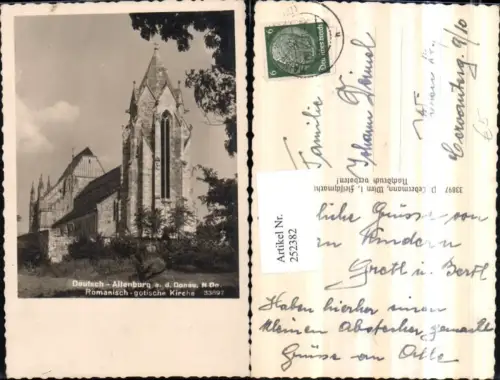 Deutsch-Altenburg a. d. Donau, N Oe
Romanisch-gotische Kirche 33897
6 6
Deutsches Reich
Familie
Johann
Wien
9/10
33897 P. Ledermann, Wien I., Fleischmarkt
Nachdruck verboten!
Artikel Nr.
252382
liche Grüsse von
Kindern
Gretl u. Bertl
Haben hierher einen
kleinen Abstecher gemacht
Grüsse an Alle